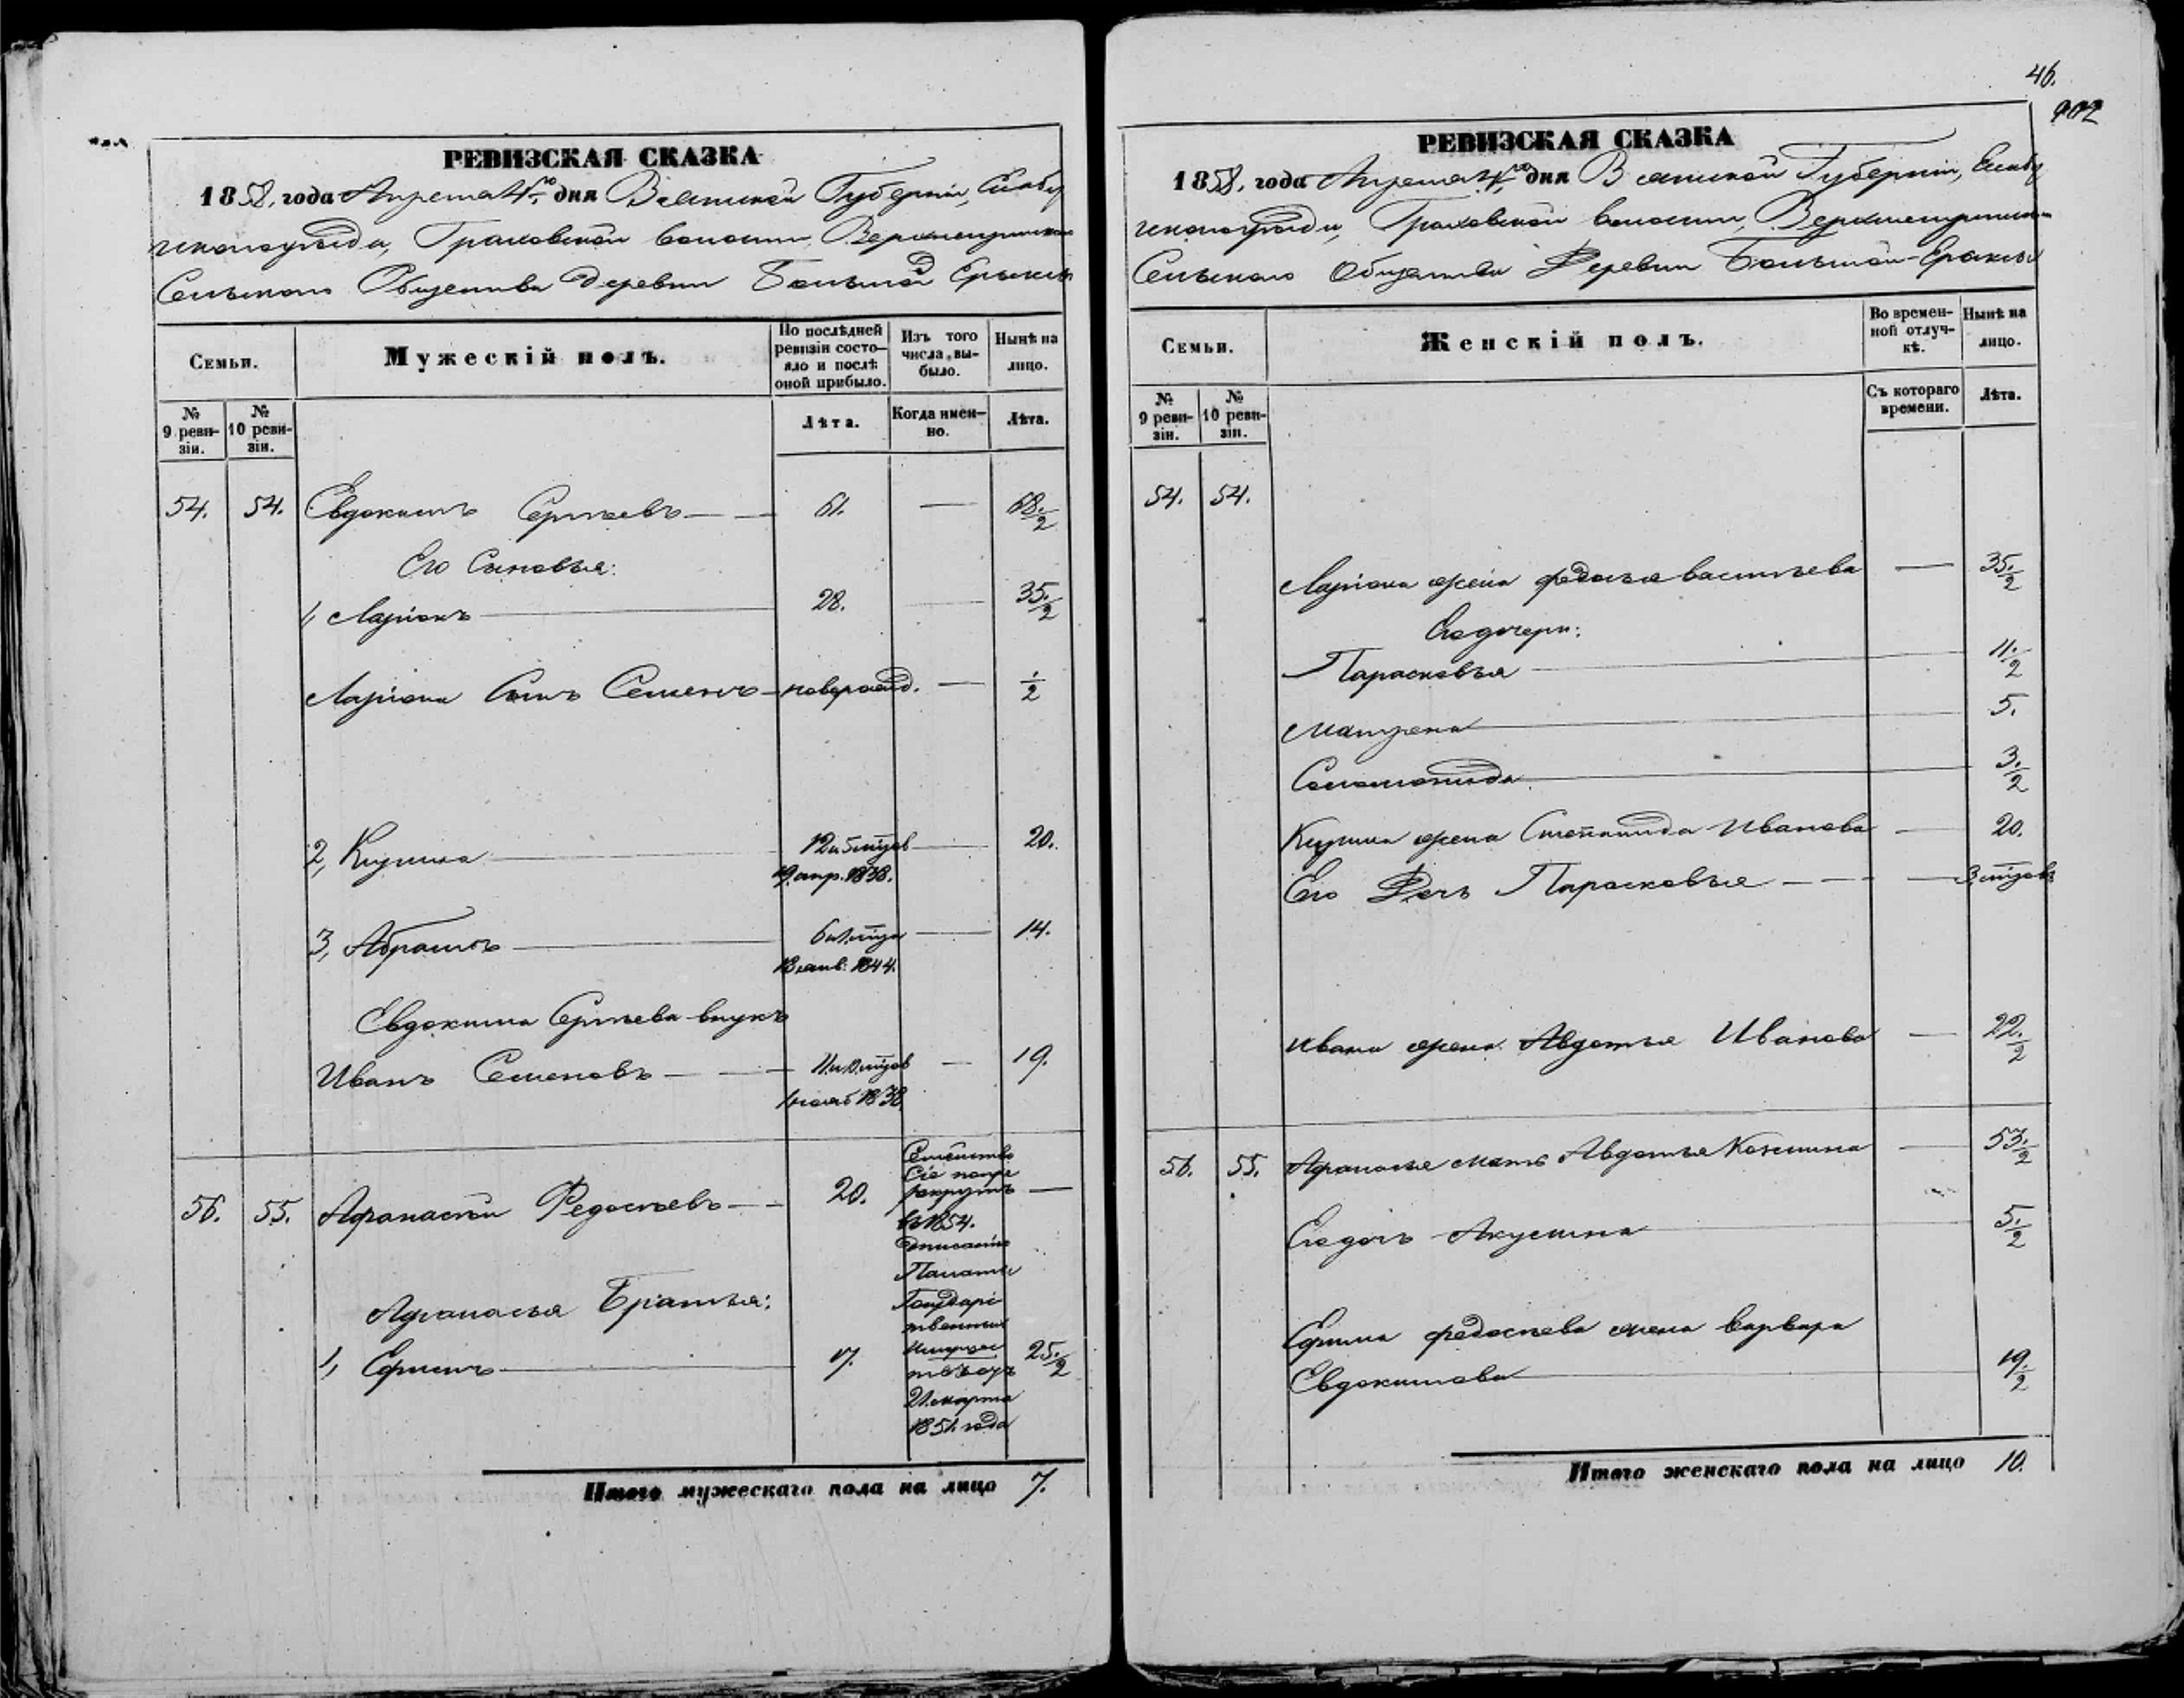 46.
РЕВИЗСКАЯ СКАЗКА
1858. года Апреля дня Вятской Губерніи, Елабу
жскаго уѣзда, Граховской волости,
Сельскаго Общества Деревни Большой Ерыксы
Семьи.
Мужескій полъ.
По послѣдней ревизіи состо-
яло и послѣ оной прибыло.
Изъ того числа, вы-
было.
Нынѣ на лицо.
№ 9 реви-
зіи.
№ 10 реви-
зіи.
Лѣта.
Когда имен-
но.
Лѣта.
54. 54. Евдокимъ Сергѣевъ 61. — 68.½
Его Сыновья:
1, Ларіонъ 28. — 35.½
Ларіона Сынъ Семенъ новорожд. — ½
2, Кузьма 12 и 5 мѣсцов — 20.
19 апр. 1838.
3, Абрамъ 6 мѣсца — 14.
1844.
Евдокима Сергѣева внукъ
Иванъ Семеновъ 11 мѣсцов — 19.
1838.
56. 55. Афанасій Федосѣевъ 20. —
Семейство
Сіе
рекрутъ
въ 1854.
Палаты
Государс
твенныхъ
Имущес
твъ отъ
21 марта
1851 года
Афанасья Братья:
1, Ефимъ 17. 25.½
Итого мужескаго пола на лицо 7.
РЕВИЗСКАЯ СКАЗКА
1858. года Апреля дня Вятской Губерніи, Елабу
жскаго уѣзда, Граховской волости,
Сельскаго Общества Деревни Большой-Ерыксы
Семьи.
Женскій полъ.
Во времен-
ной отлуч-
кѣ.
Нынѣ на лицо.
№ 9 реви-
зіи.
№ 10 реви-
зіи.
Съ котораго времени.
Лѣта.
54. 54.
Ларіона жена Федосья Васильева — 35.½
Его дочери:
Парасковья 11.½
Матрена 5.
Соломонида 3.½
Кузьмы жена Степанида Иванова — 20.
Его Дочь Парасковья — 3 мѣсцов
Ивана жена Авдотья Иванова — 22.½
56. 55. Афанасья мать Авдотья Козмина — 53.½
Ея дочь Акулина 5.½
Ефима Федосѣева жена Варвара
Евдокимова 19.½
Итого женскаго пола на лицо 10.